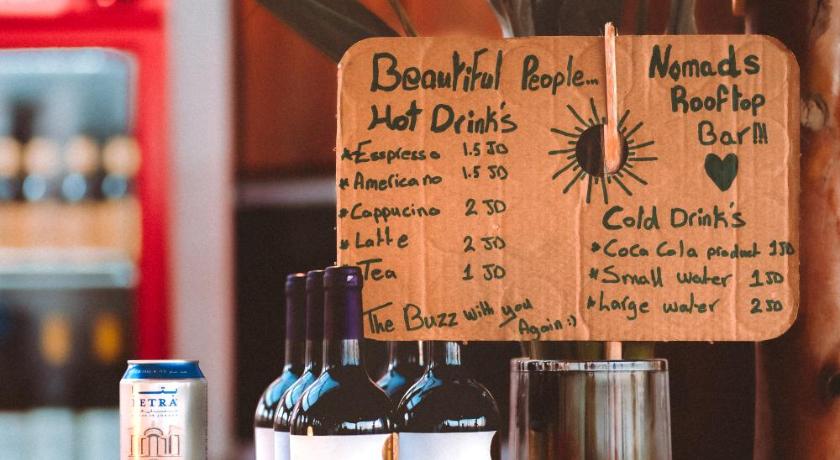 Beautiful People...
Hot Drink's
*Esspresso 1.5 JD
*Americano 1.5 JD
*Cappucino 2 JD
*Latte 2 JD
*Tea 1 JD
The Buzz with you
Again :)
Nomads
Rooftop
Bar!!!
Cold Drink's
*Coca Cola product 1JD
*Small water 1JD
*Large water 2JD
بتـرا
ETRA